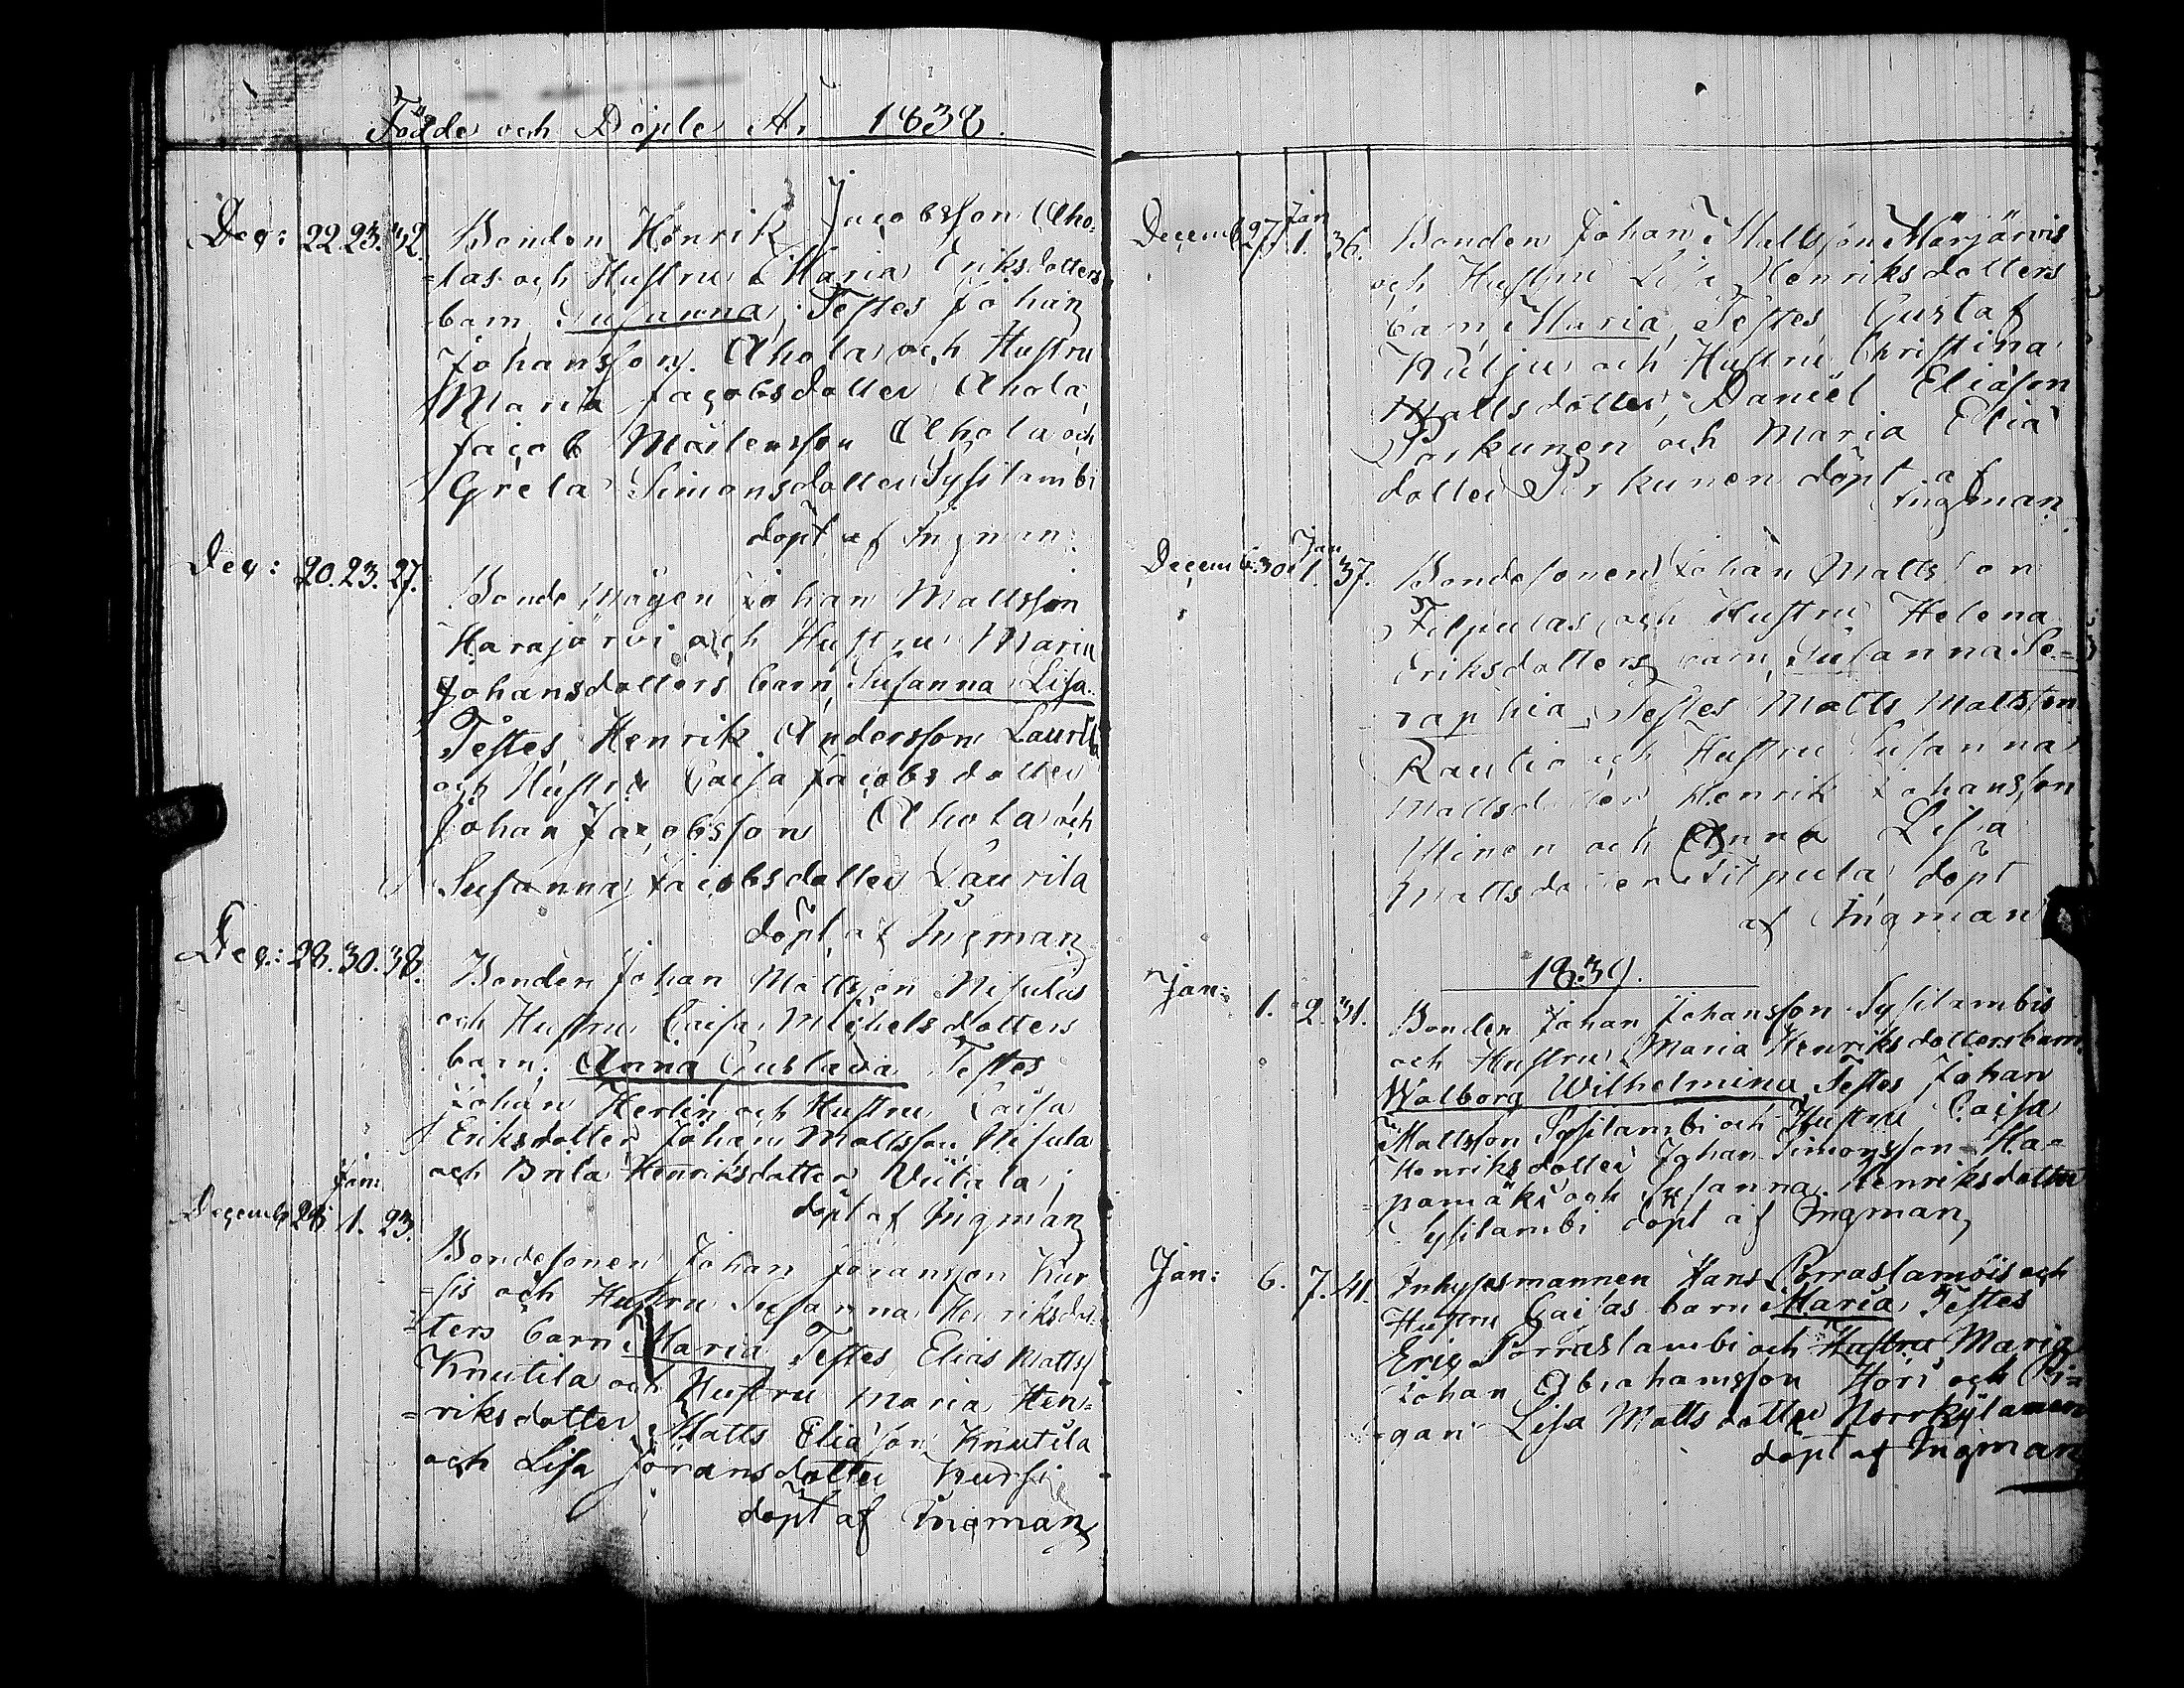 Födde och Döpte År 1838.
Dec: 22. 23. 32. Bonden Henrik Jacobsson Aho-
=las och Hustru Maria Eriksdotters
barn, Susanna; Testes Johan
Johansson Ahola och Hustru
Maria Jacobsdotter Ahola,
Jacob Mårtensson Ahola och
Greta Simonsdotter Sysilambi
döpt af Ingman.
Dec: 20. 23. 27. Bonde Mågen Johan Mattsson
Harajärvi och Hustru Maria
Johansdotters barn, Susanna Lisa.
Testes Henrik Andersson Laurila
och Hustru Caisa Jacobsdotter
Johan Jacobsson Ahola och
Susanna Jacobsdotter Laurila
döpt af Ingman
Dec: 28. 30. 38. Bonden Johan Mattsson Nisulas
och Hustru Caisa Michelsdotters
barn, Anna Gustava Testes
Johan Herlin och Hustru Caisa
Eriksdotter, Johan Mattsson Nisula
och Brita Henriksdotter Wiitala;
döpt af Ingman
Jan:
Decemb 1. 23. Bondesonen Johan Jöransson Kur
=sis och Hustru Susanna Henriksdot
=ters barn Maria Testes Elias Matts
Knutila och Hustru Maria Hen=
=riksdotter, Matts Eliasson Knutila
och Lisa Göransdotter Kursi
döpt af Ingman
Jan
Decemb 27. 1. 36. Bonden Johan Mattsson Märjärvis
och Hustru Lisa Henriksdotters
barn, Maria, Testes Gustaf
Kulju och Hustru Christina
Mattsdotter, Daniel Eliason
Porkunen och Maria Elia
dotter Porkunen döpt af
Ingman.
Jan
Decemb 30. 1. 37. Bondesonen Johan Mattsson
Filpulas och Hustru Helena
Eriksdotters barn, Susanna Se=
raphia, Testes Matts Mattsson
Rautio och Hustru Susanna
Mattsdotter Henrik Johansson
och Anna Lisa
Mattsdotter Filpula, döpt
af Ingman
1839.
Jan: 1. 2. 31. Bonden Johan Johansson Sysilambis
och Hustru Maria Henriksdotters barn
Walborg Wilhelmina, Testes Johan
Mattsson Sysilambi och Hustru Caisa
Henriksdotter Johan Simonsson Ha=
=pamäki och Susanna Henriksdotter
Sysilambi döpt af Ingman,
Jan: 6. 7. 41. Inhysesmannen Hans Porraslambis och
Hustru Caisas barn Maria, Testes
Eric Porraslambi och Hustru Maria
Johan Abrahamsson Hori och Pi=
=gan Lisa Mattsdotter Norrkylänen
döpt af Ingman